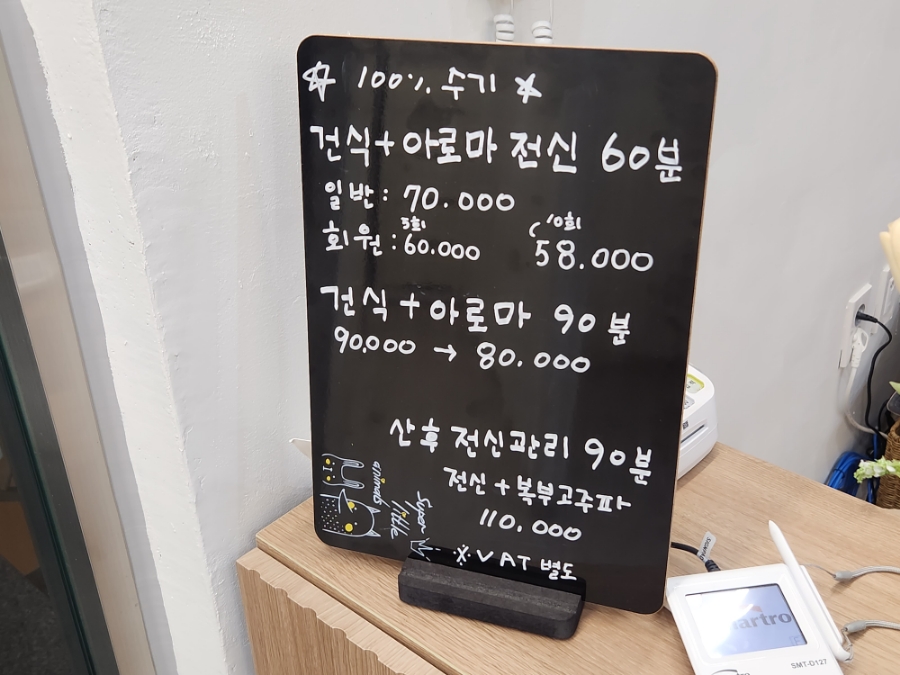 ☆ 100% 수기 ☆
건식+아로마 전신 60분
일반: 70.000
5회 10회
회원: 60.000 58.000
건식+아로마 90분
90.000 → 80.000
산후 전신관리 90분
전신+복부고주파
110.000
※ VAT 별도
animals
little
SMT-D127